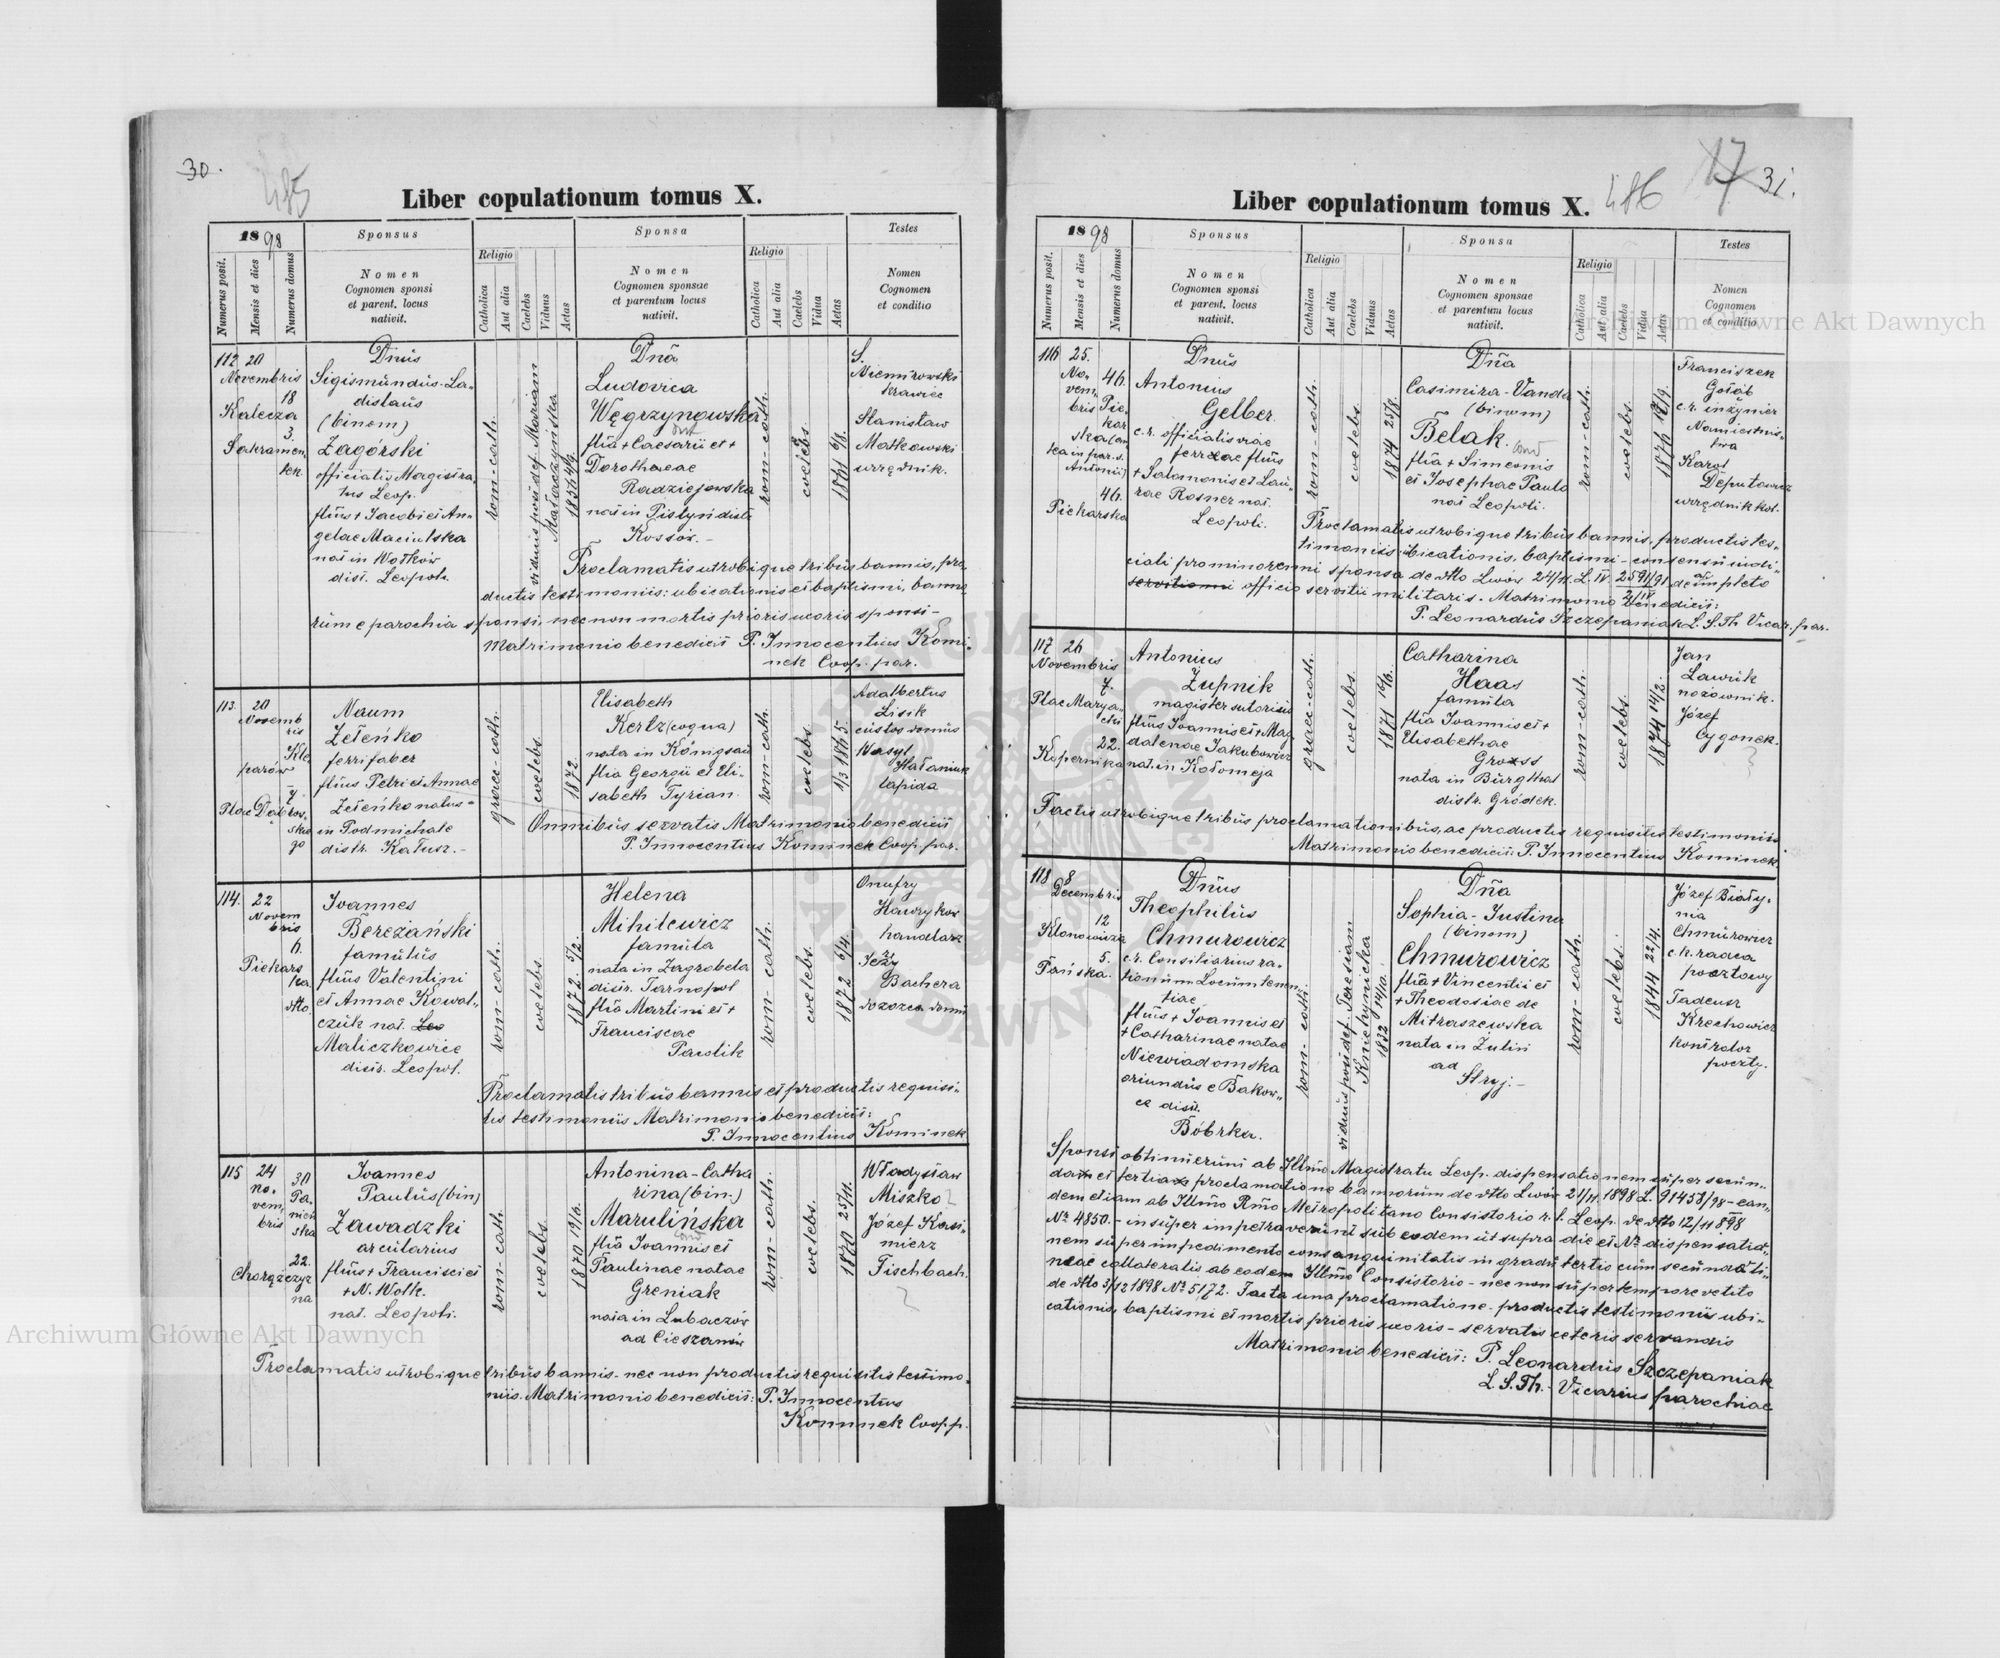 30.
485
Liber copulationum tomus X.
1898
Sponsus
Sponsa
Testes
Numerus posit.
Mensis et dies
Numerus domus
Nomen
Cognomen sponsi
et parent. locus
nativit.
Religio
Catholica
Aut alia
Caelebs
Viduus
Aetas
Nomen
Cognomen sponsae
et parentum locus
nativit.
Religio
Catholica
Aut alia
Caelebs
Vidua
Aetas
Nomen
Cognomen
et conditio
112 20
Novembris
18
Kalecza
3.
Sakramen
tek.
Dnus
Sigismundus-La-
dislaus
(binom)
Zagórski
officialis Magistra
tus Leop.
flius + Jacobi et An-
gelae Maciulska
nat in Wołków
dist. Leopol.
rom-cath.
viduus post def. Mariam
Małaczyńska
1834 4/5.
Dna
Ludovica
Węgrzynowska
flia + Caesarii et +
Dorotheae
Radziejowska
nat in Pistyń distr
Kossów.-
rom-cath.
coelebs.
1861 6/8.
S.
Niemirowski
krawiec
Stanisław
Małkowski
urzędnik.
Proclamatis utrobique tribus bannis, pro-
ductis testimoniis: ubicationis et baptismi, banno-
rum e parochia sponsi, nec non mortis prioris uxoris sponsi-
Matrimonio benedixit P. Innocentius Komi-
nek Coop. par.
113. 20
Novemb
ris
Kle-
parów
7.
Plac Dąbrow-
skie
go
Naum
Zeleńko
ferrifaber
flius Petri et Annae
Zeleńko natus-
in Podmichale
distr. Kałusz.-
graec-cath.
coelebs.
1872.
Elisabeth
Kertz (coqua)
nata in Königsau
flia Georgii et Eli-
sabeth Tyrian.
rom-cath.
coelebs.
1/3 1875.
Adalbertus
Lisik
custos domus
Wasyl
Hałaniuk
lapida
Omnibus servatis Matrimonio benedixit
P. Innocentius Kominek Coop. par.
114. 22
Novem
bris
6.
Piekars
ka.
dtto.
Joannes
Bereżański
famulus
flius Valentini
et Annae Kowal-
czuk nat.
Maliczkowice
distr. Leopol.
rom-cath.
coelebs.
1872. 5/2.
Helena
Mihilewicz
famula
nata in Zagrobela
distr. Tarnopol
flia Martini et +
Franciscae
Pawlik
rom-cath.
coelebs.
1872 6/4.
Onufry
Hawryków
handlarz
Jerzy
Bachera
dozorca domu
Proclamatis tribus bannis et productis requisi-
tis testimoniis Matrimonio benedixit:
P. Innocentius Kominek
115 24
No-
vem-
bris
30
Pa-
nień
ska
22.
Chorążczyz
na
Joannes
Paulus (bin)
Zawadzki
arcularius
flius + Francisci et
+ N. Wolk.
nat. Leopoli.
rom-cath.
coelebs.
1870 19/6.
Antonina-Catha
rina (bin.)
Marulińska
flia Joannis et
Paulinae natae
Greniak
nata in Lubaczów
ad Cieszanów
rom-cath.
coelebs.
1870 25/11.
Władysław
Miszko
Józef Kasi-
mierz
Fischbach.
Proclamatis utrobique tribus bannis- nec non productis requisitis testimo-
niis. Matrimonio benedixit: P. Innocentius
Kominek Coop. p.
17
31.
486
Liber copulationum tomus X.
1898
Sponsus
Sponsa
Testes
Numerus posit.
Mensis et dies
Numerus domus
Nomen
Cognomen sponsi
et parent. locus
nativit.
Religio
Catholica
Aut alia
Caelebs
Viduus
Aetas
Nomen
Cognomen sponsae
et parentum locus
nativit.
Religio
Catholica
Aut alia
Caelebs
Vidua
Aetas
Nomen
Cognomen
et conditio
116 25.
No-
vem-
bris
46.
Pie-
kar
ska
in par. s.
Antonii)
46.
Piekarska
Dnus
Antonius
Gelber.
c.r. officialis viae
ferreae flius
+ Salamonis et Lau-
rae Rosner nat.
Leopoli.
rom-cath.
coelebs.
1874 25/8.
Dna
Casimira-Vanda
(binom)
Belak.
flia + Simeonis
et Josephae Paulo
nat Leopoli.
rom-cath.
coelebs.
Franciszek
Gołąb
c.k. inżynier
Namiestnic-
twa
Karol
Deputowicz
urzędnik kol.
Proclamatis utrobique tribus bannis, productis tes-
timoniis ubicationis, baptismi- consensu iudi-
ciali pro minorenni sponsa de dtto Lwów 24/11. L. IV. 2591/91 de impleto
officio servitii militaris. Matrimonio benedixit:
P. Leonardus Szczepaniak L. S. Th. Vicar. par.
117 26
Novembris
7.
Plac Marya-
cki
22.
Kopernika
Antonius
Zupnik
magister sutorius
flius Joannis et + Mag
dalenae Jakubowicz
nat. in Kołomeja
graec-cath.
coelebs.
1871 16/6.
Catharina
Haas
famula
flia Joannis et +
Elisabethae
Gross
nata in Burgthal
distr. Gródek.
rom-cath.
coelebs.
1874 14/2.
Jan
Lawrik
nożownik.
Józef
Cygonek.
Factis utrobique tribus proclamationibus, ac productis requisitis testimoniis
Matrimonio benedixit: P. Innocentius Kominek
118 8
Decembris
12
Klonowicza
5.
Pańska.
Dnus
Theophilus
Chmurowicz
c.r. Consiliarius ra-
tionum Locumtenen-
tiae
flius + Joannis et
+ Catharinae natae
Niewiadomska
oriundus e Bakow-
ce distr.
Bóbrka.
rom-cath.
viduus post def. Teresiam
Kniehynicka
1832 14/10.
Dna
Sophia-Justina
(binom)
Chmurowicz
flia + Vincentii et
+ Theodosiae de
Mitraszewska
nata in Zulin
ad
Stryj.-
rom-cath.
coelebs.
1844 22/4.
Józef Biały-
nia
Chmurowicz
c.k. radca
pocztowy
Tadeusz
Krechowicz
kontrolor
poczty.
Sponsi obtinuerunt ab Illmo Magistratu Leop. dispensationem super secun-
da et tertia proclamatione bannorum de dtto Lwów 21/11 1898 L. 91458/98- ean-
dem etiam ab Illmo Rmo Metropolitano Consistorio r. l. Leop. de dtto 12/11 898
Nr 4850.- insuper impetraverunt sub eodem ut supra die et Nr. dispensatio-
nem super impedimento consanguinitatis in gradu tertio cum secundo li-
neae collateralis ab eodem Illmo Consistorio- nec non super tempore vetito
de dtto 3/12 1898 Nr. 5172. Facta una proclamatione- productis testimoniis ubi-
cationis, baptismi et mortis prioris uxoris- servatis ceteris servandis
Matrimonio benedixit: P. Leonardus Szczepaniak
L. S. Th.- Vicarius parochiae
Archiwum Główne Akt Dawnych
Archiwum Główne Akt Dawnych